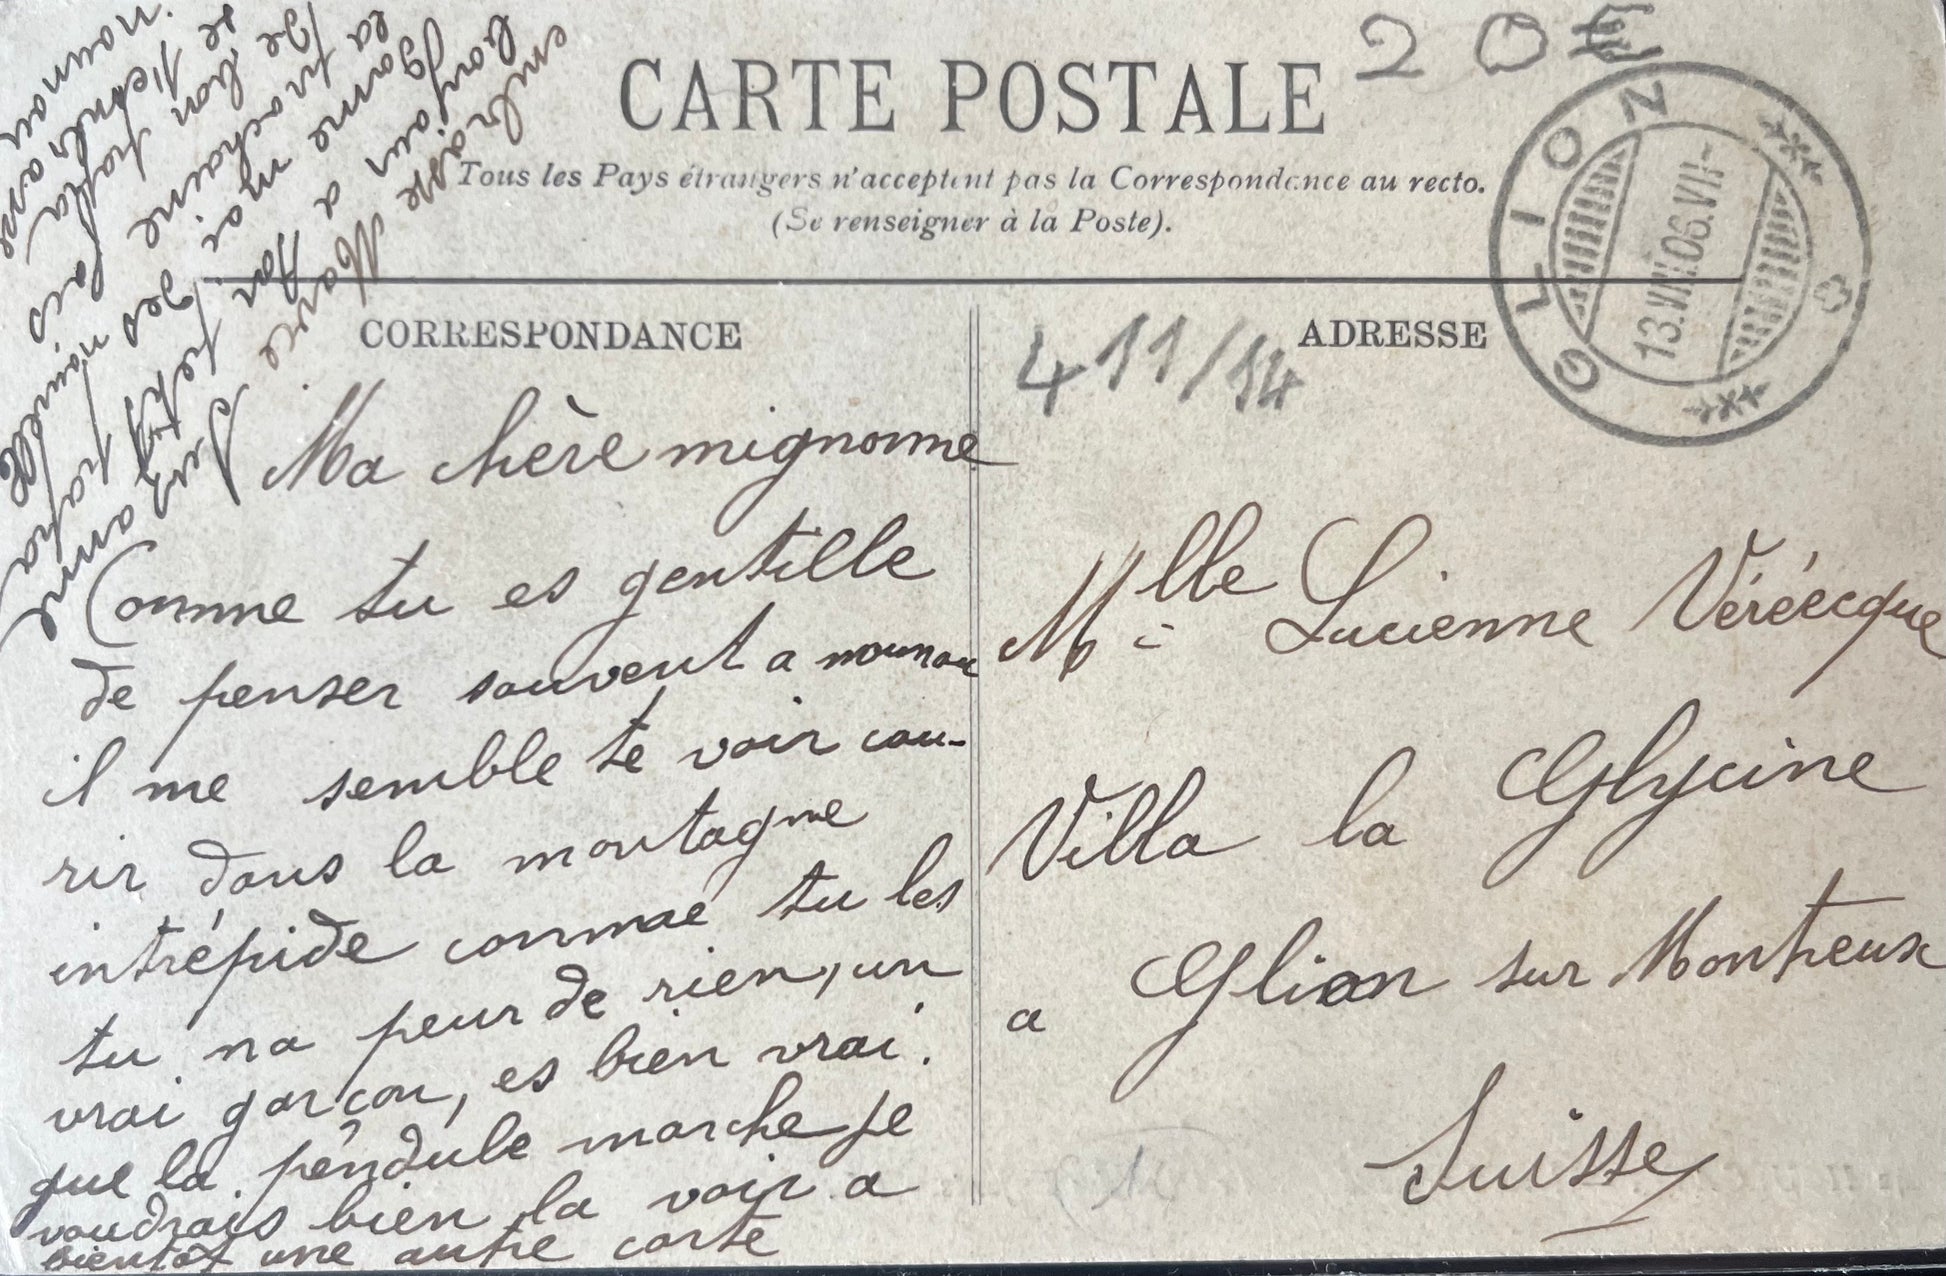 20€
CARTE POSTALE
Tous les Pays étrangers n'acceptent pas la Correspondance au recto.
(Se renseigner à la Poste).
GLION
13.VIII.06.VII
CORRESPONDANCE
ADRESSE
411/14
Ma chère mignonne
Comme tu es gentille
de penser souvent a nounou
il me semble te voir cou-
rir dans la montagne
intrépide comme tu les
tu na peur de rien, un
vrai garçon, es bien vrai.
que la pendule marche je
voudrais bien la voir a
bientot une autre carte
embrasse Marie Suzanne
bonjour a
moi
la prochaine des nouvelle
papa
t'embrasse
nounou
Mlle Lucienne Véréecque
Villa la Glycine
a Glion sur Montreux
Suisse